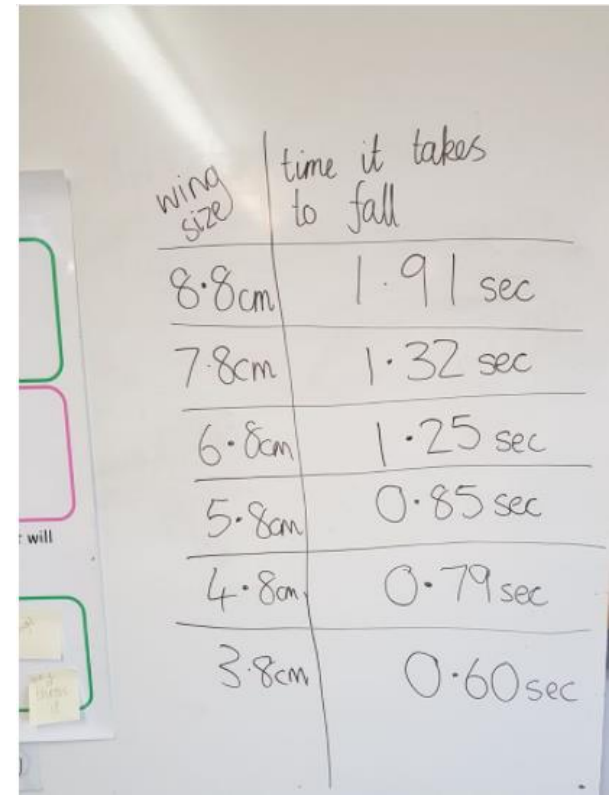 wing
size
time it takes
to fall
8.8cm 1.91 sec
7.8cm 1.32 sec
6.8cm 1.25 sec
5.8cm 0.85 sec
4.8cm 0.79 sec
3.8cm 0.60 sec
will